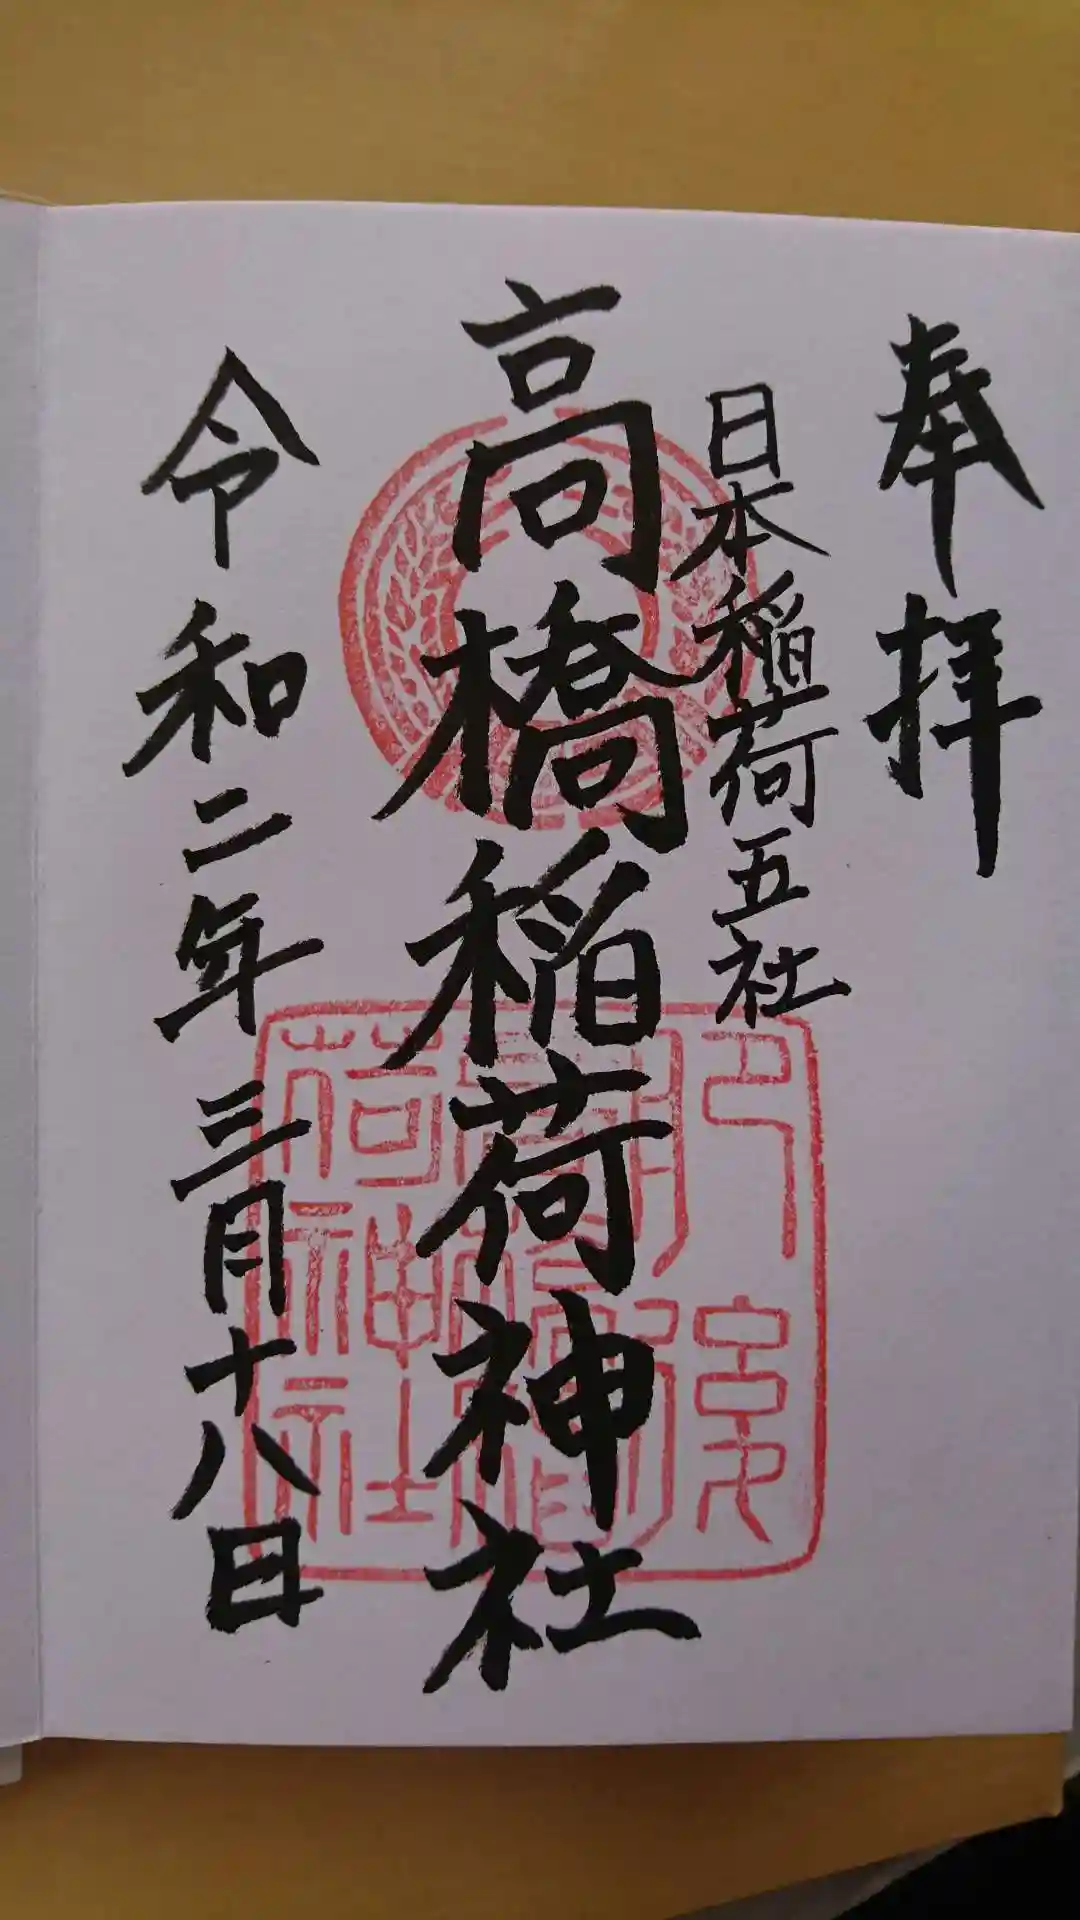 奉拝
日本稲荷五社
高橋稲荷神社
令和二年三月十八日
肥後
高橋稲
荷神社